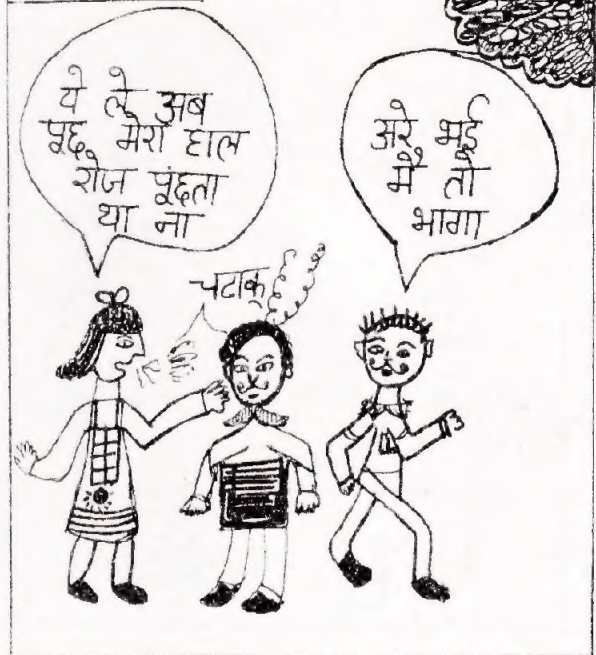 ये ले अब
पूछ मेरा हाल
रोज पूंछता
था ना
चटाक्
अरे भई
मै तो
भागा